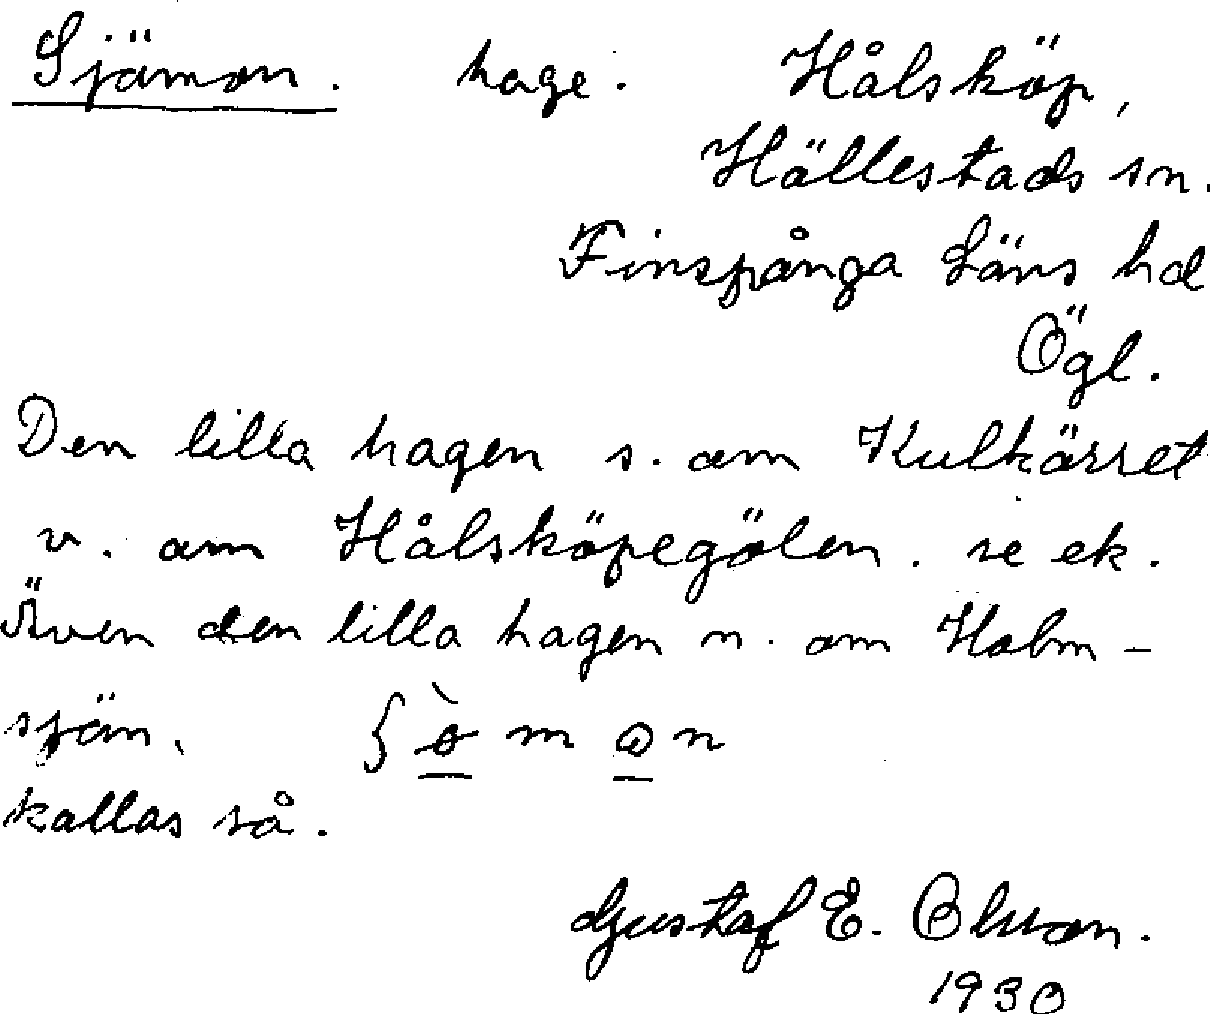 Sjömon. hage. Hålsköp,
Hällestads sn.
Finspånga Läns hd
Ögl.
Den lilla hagen s. om Kulkärret
v. om Hålsköpegölen. se ek.
Även den lilla hagen n. om Holm-
sjön.
kallas så.
Gustaf E. Olsson.
1930